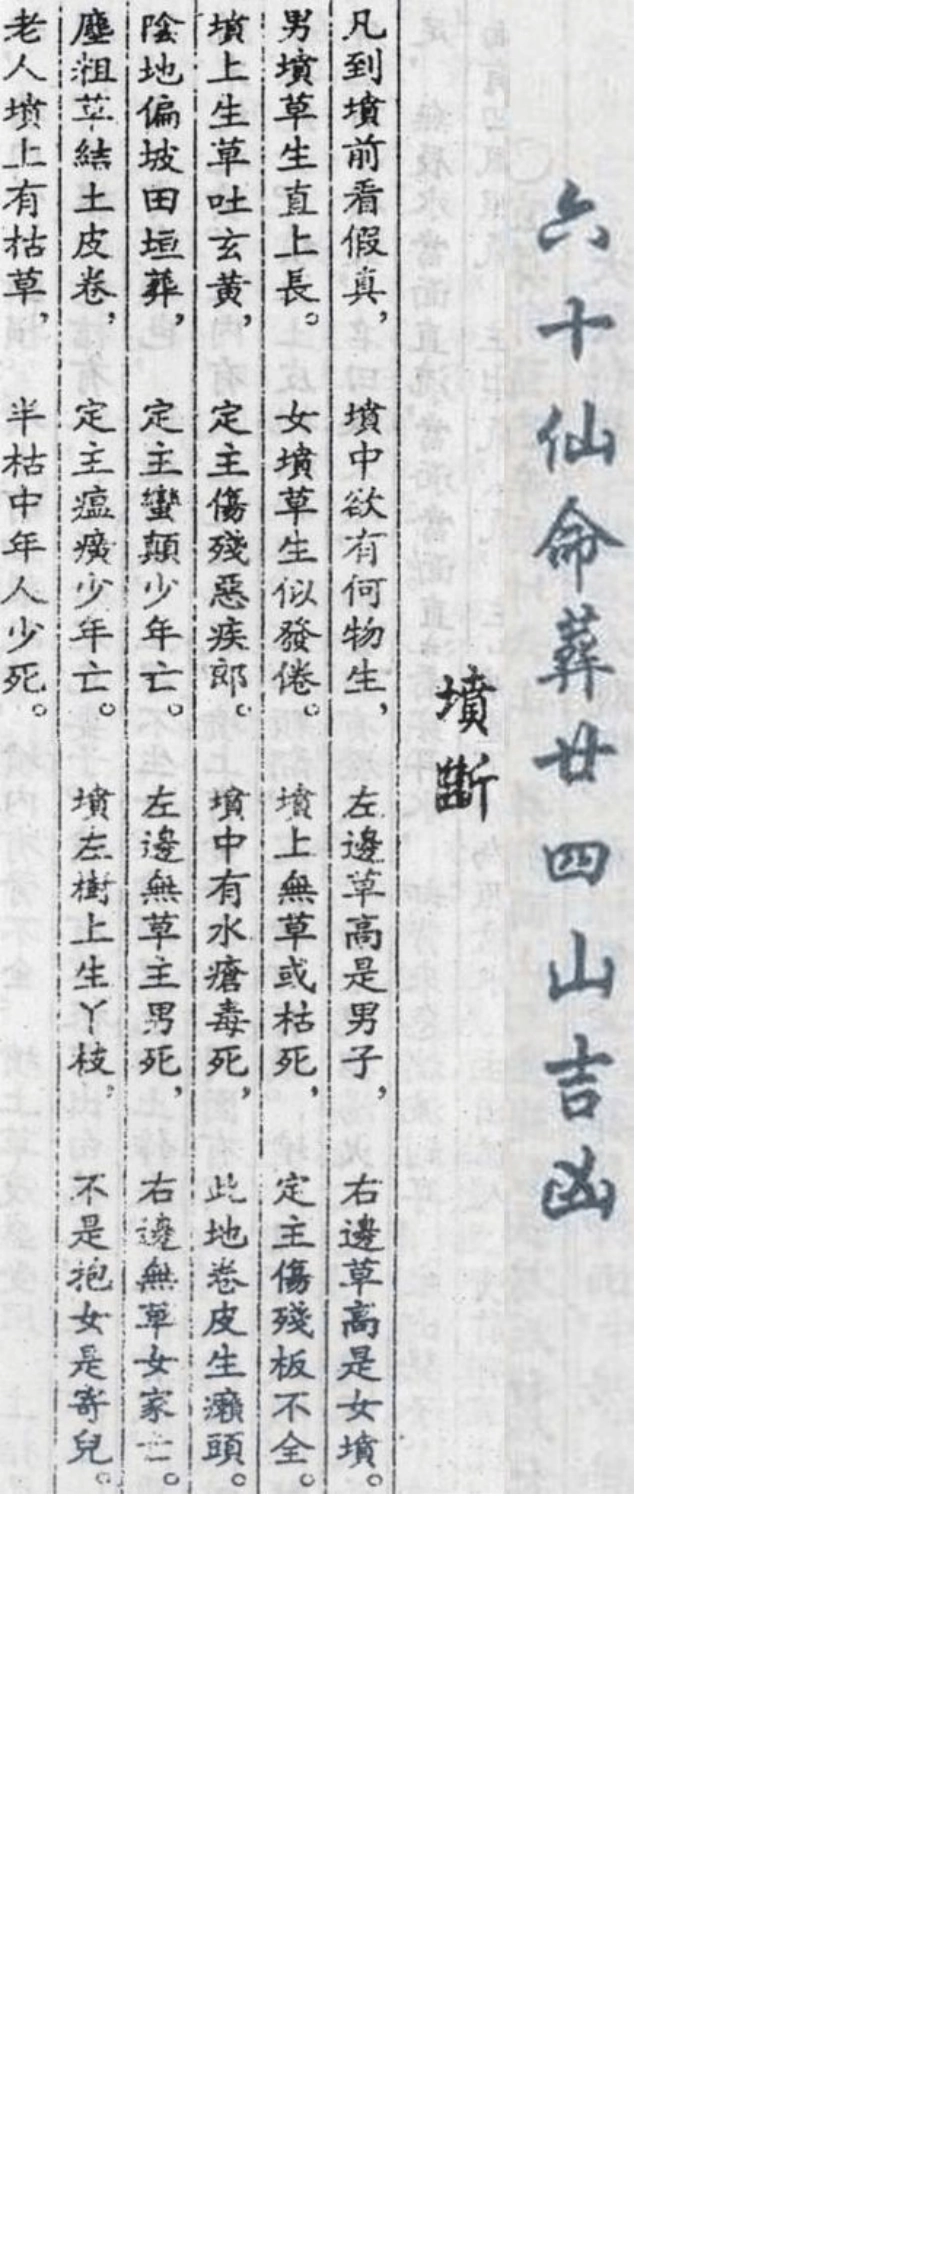 六十仙命葬廿四山吉凶
墳斷
凡到墳前看假真，墳中欲有何物生，左邊草高是男子，右邊草高是女墳。
男墳草生直上長。女墳草生似發倦。墳上無草或枯死，定主傷殘板不全。
墳上生草吐玄黃，定主傷殘惡疾郎。墳中有水瘡毒死，此地卷皮生癩頭。
陰地偏坡田垣葬，定主蠻顛少年亡。左邊無草主男死，右邊無草女家亡。
塵粗草結土皮卷，定主瘟癀少年亡。墳左樹上生丫枝，不是抱女是寄兒。
老人墳上有枯草，半枯中年人少死。